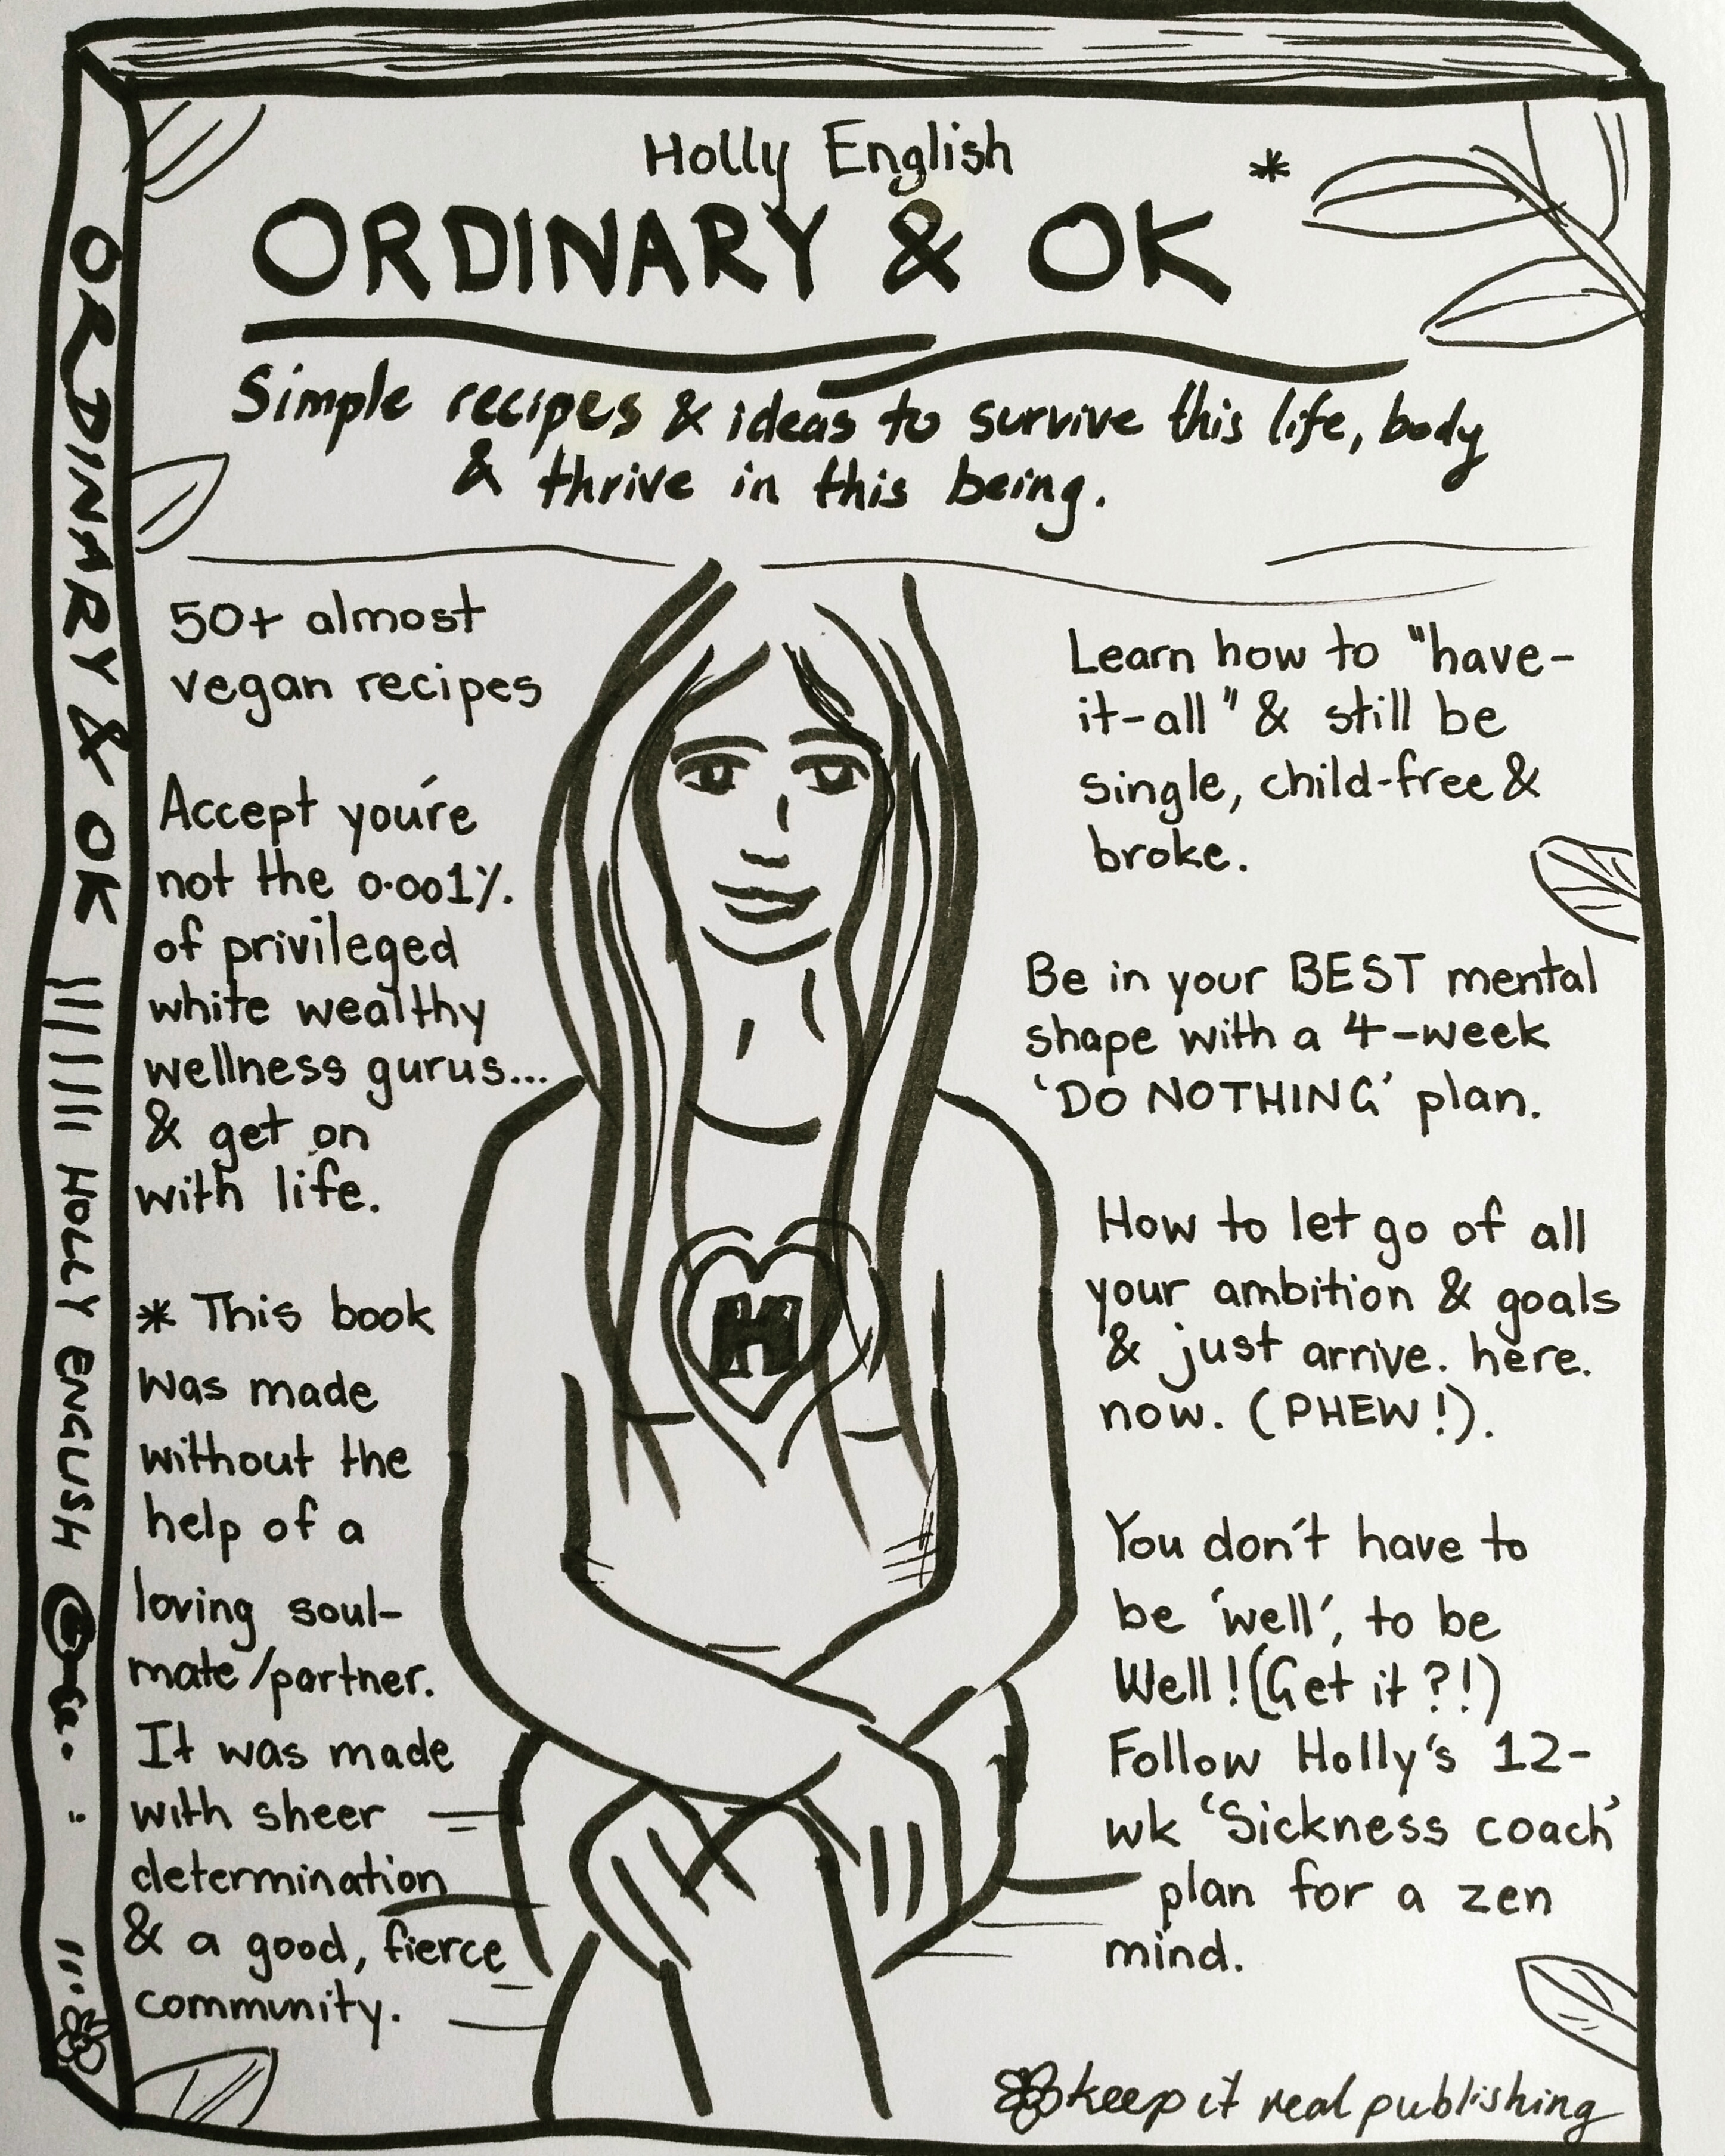 Holly English
ORDINARY & OK *
Simple recipes & ideas to survive this life, body
& thrive in this being.
50+ almost
vegan recipes
Accept you're
not the 0.001%
of privileged
white wealthy
wellness gurus...
& get on
with life.
* This book
was made
without the
help of a
loving soul-
mate/partner.
It was made
with sheer
determination
& a good, fierce
community.
H
Learn how to "have-
it-all" & still be
single, child-free &
broke.
Be in your BEST mental
shape with a 4-week
'DO NOTHING' plan.
How to let go of all
your ambition & goals
& just arrive. here.
now. (PHEW!).
You don't have to
be 'well', to be
Well! (Get it?!)
Follow Holly's 12-
wk 'Sickness coach'
plan for a zen
mind.
keep it real publishing
ORDINARY & OK HOLLY ENGLISH